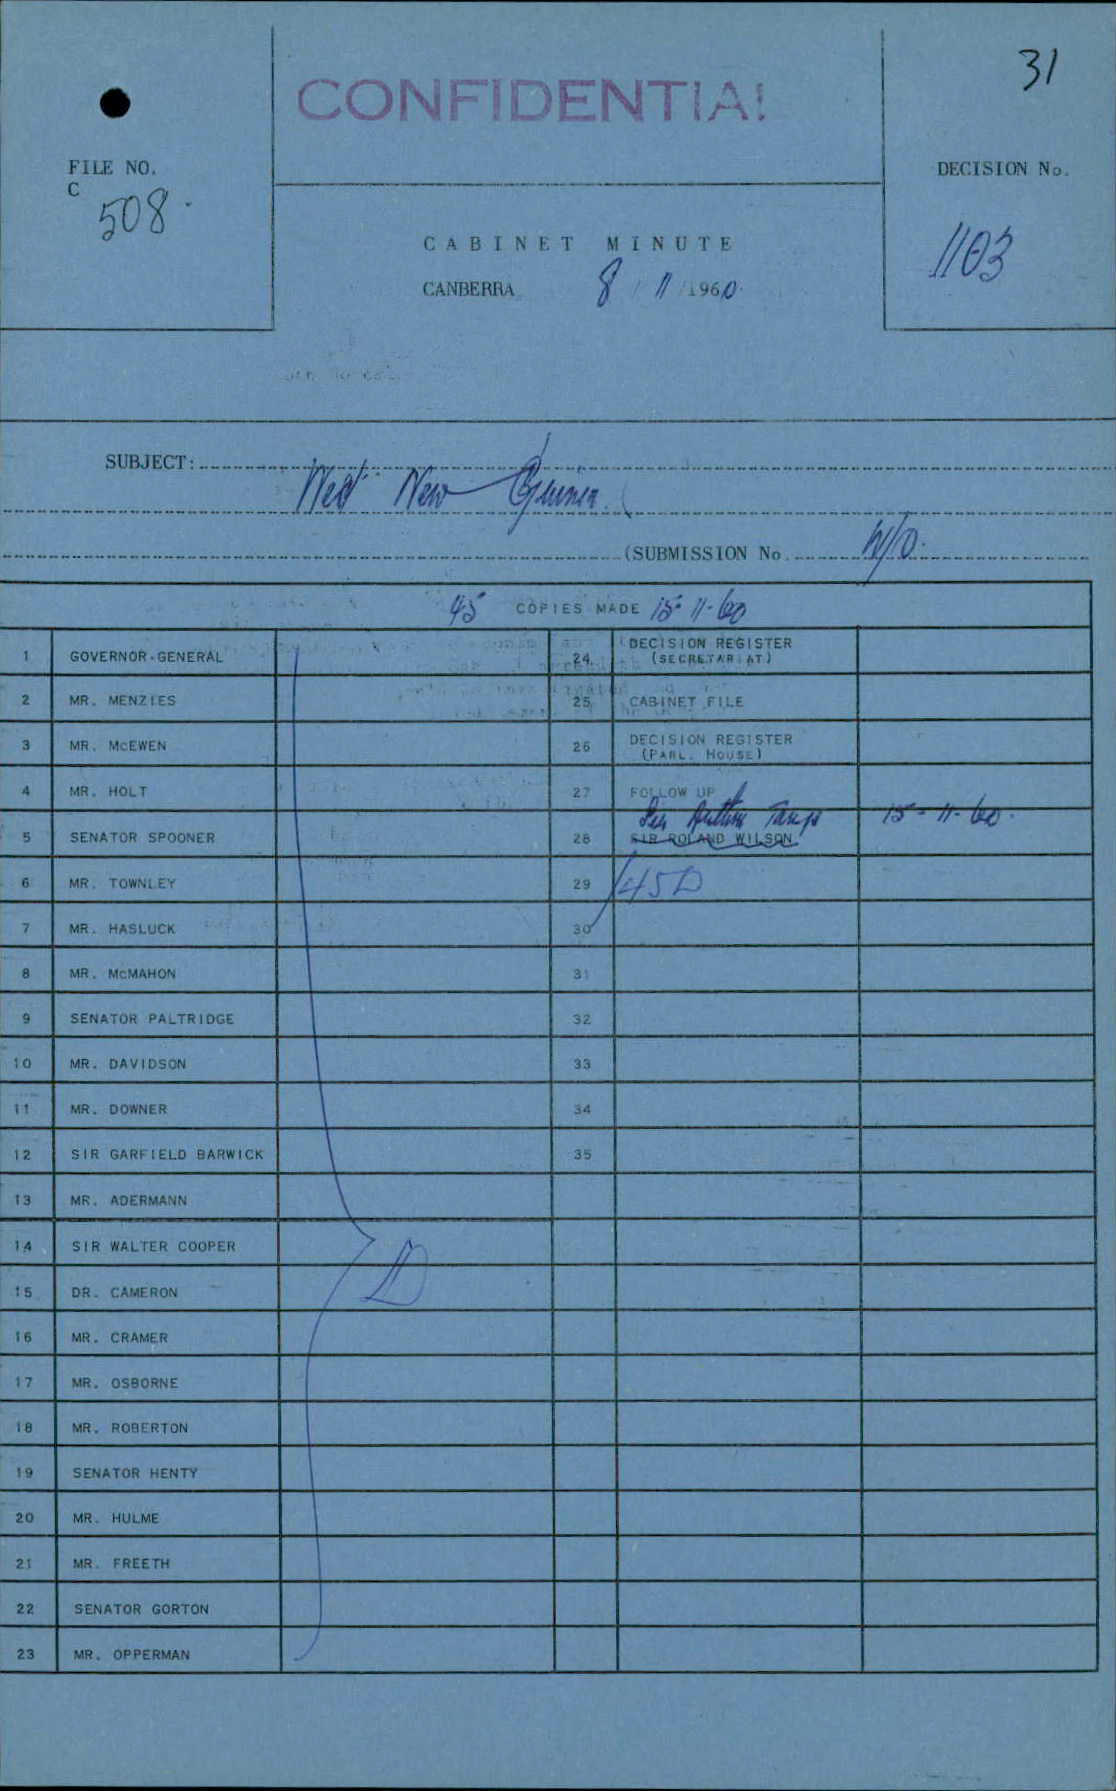 31
CONFIDENTIAL
FILE NO.
C 508.
DECISION No.
1103
CABINET MINUTE
CANBERRA 8 / 11 /1960.
SUBJECT: West New Guinea.
(SUBMISSION No. W/O.
45 COPIES MADE 15-11-60
1 GOVERNOR-GENERAL 24 DECISION REGISTER
(SECRETARIAT)
2 MR. MENZIES 25 CABINET FILE
3 MR. McEWEN 26 DECISION REGISTER
(PARL. HOUSE)
4 MR. HOLT 27 FOLLOW UP
Sir Arthur Tange 15-11-60.
5 SENATOR SPOONER 28 SIR ROLAND WILSON
6 MR. TOWNLEY 29 45D
7 MR. HASLUCK 30
8 MR. McMAHON 31
9 SENATOR PALTRIDGE 32
10 MR. DAVIDSON 33
11 MR. DOWNER 34
12 SIR GARFIELD BARWICK 35
13 MR. ADERMANN
14 SIR WALTER COOPER
D
15 DR. CAMERON
16 MR. CRAMER
17 MR. OSBORNE
18 MR. ROBERTON
19 SENATOR HENTY
20 MR. HULME
21 MR. FREETH
22 SENATOR GORTON
23 MR. OPPERMAN